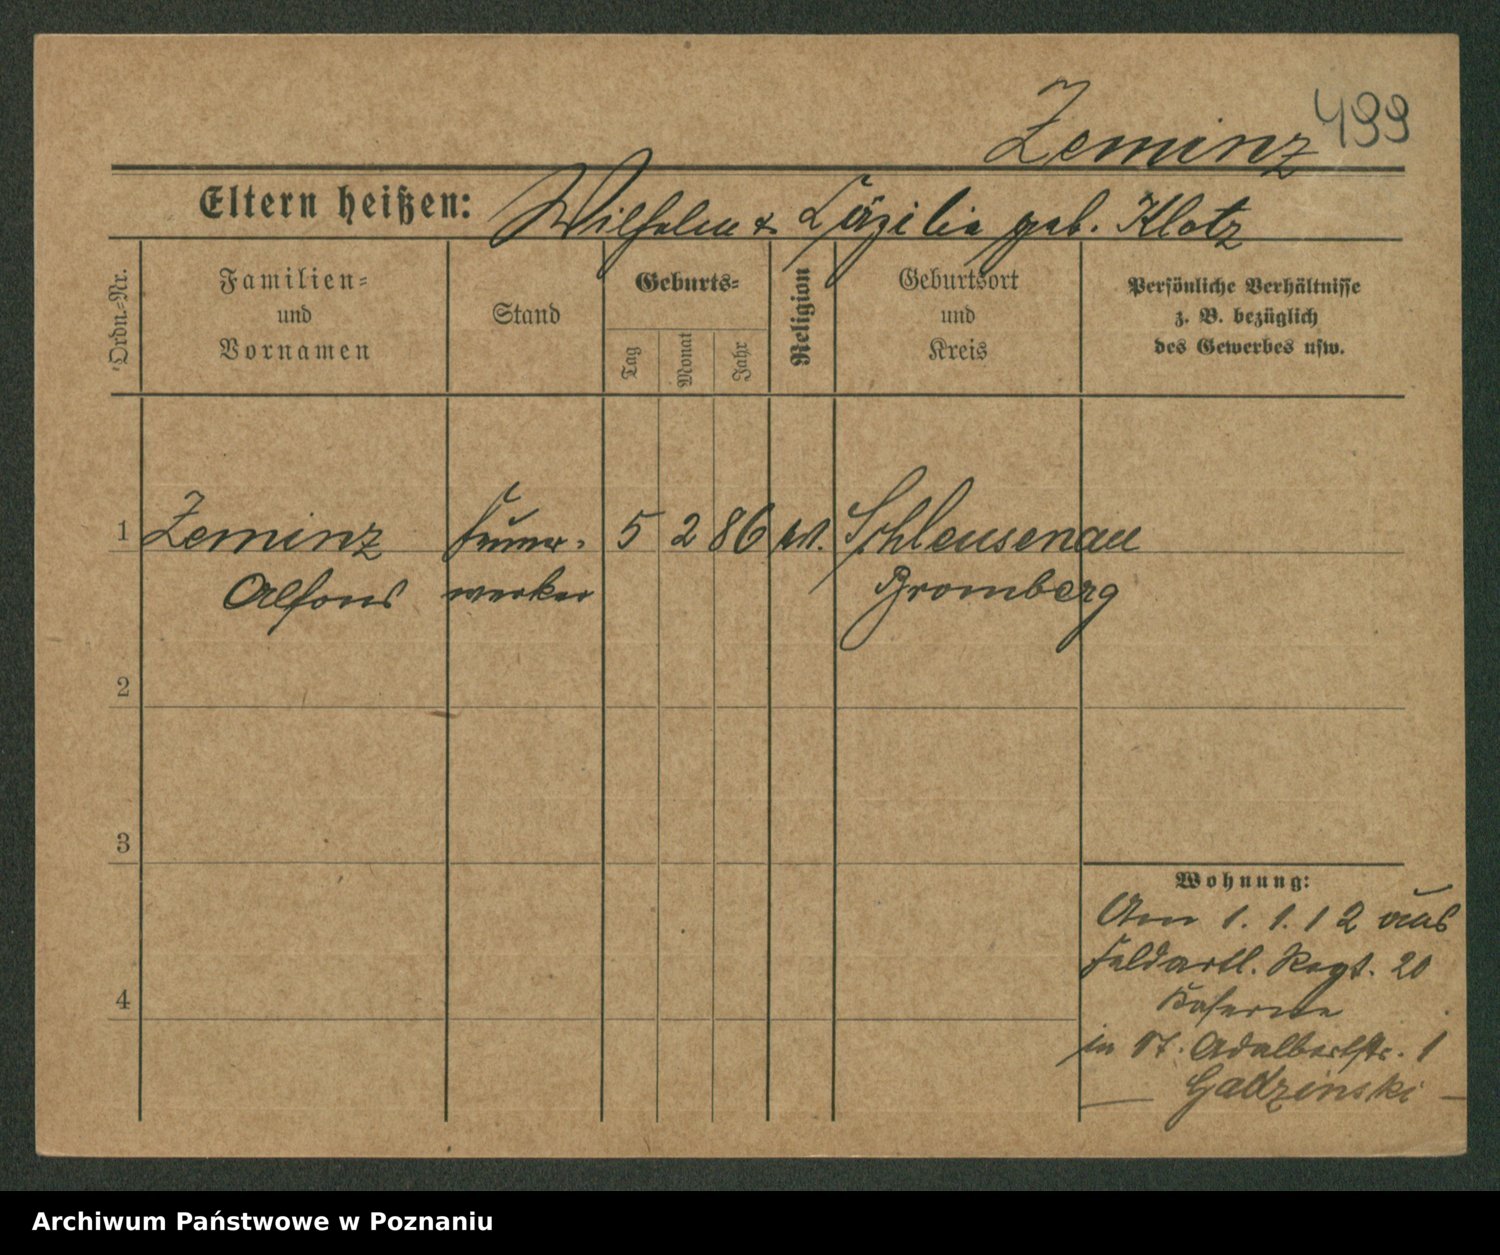 Zeminz 499
Eltern heißen: Wilhelm & Cäzilie geb. Klotz
Ordn.-Nr.
Familien-
und
Vornamen
Stand
Geburts-
Tag
Monat
Jahr
Religion
Geburtsort
und
Kreis
Persönliche Verhältnisse
z. B. bezüglich
des Gewerbes usw.
1 Zeminz Feuer- 5 2 86 Schleusenau
Alfons werker Bromberg
2
3
4
Wohnung:
Am 1. 1. 12 aus
Feldartl. Regt. 20
Kaserne
in St. Adalbertstr. 1
Gadzinski
Archiwum Państwowe w Poznaniu